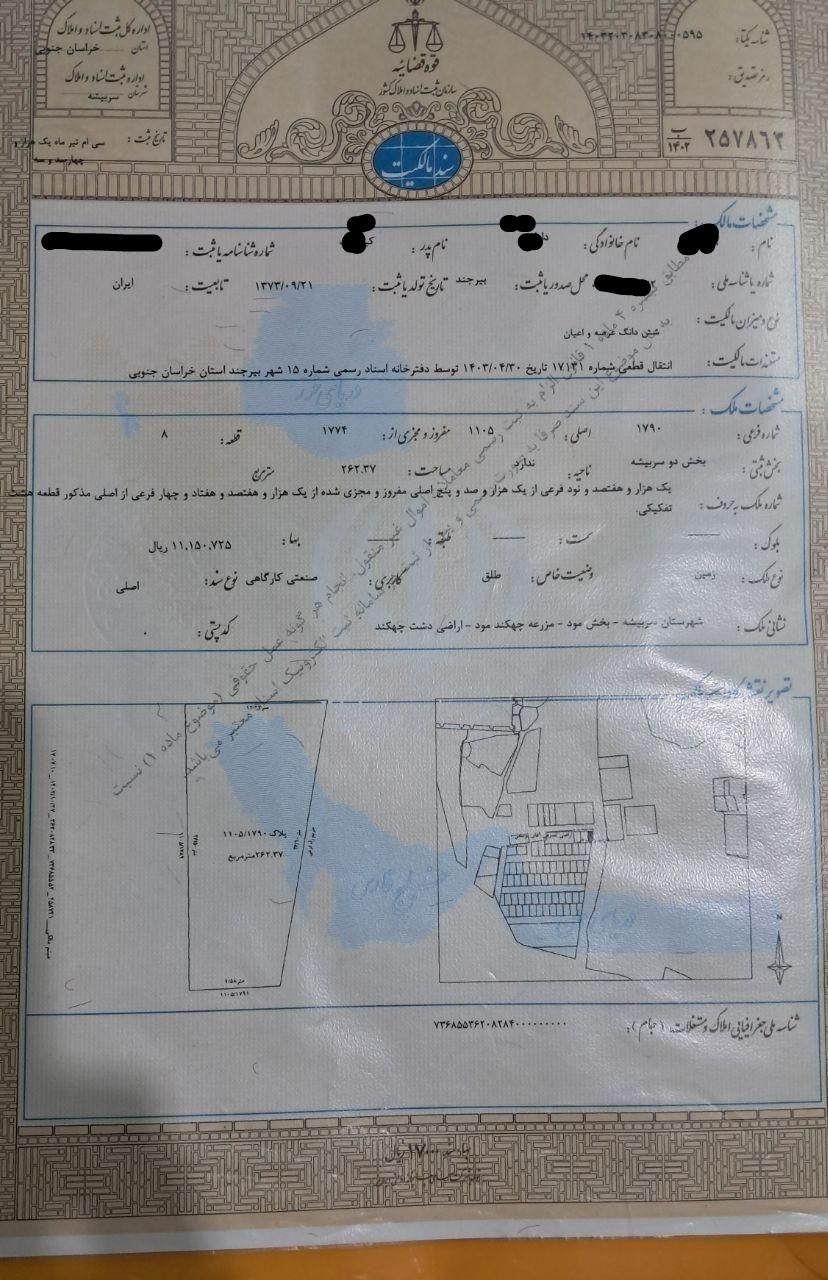 اداره کل ثبت اسناد و املاک
استان خراسان جنوبی
اداره ثبت اسناد و املاک
شهرستان سربیشه
تاریخ ثبت: سی ام تیر ماه یک هزار و چهارصد و سه
قوه قضائیه
سازمان ثبت اسناد و املاک کشور
سند مالکیت
شناسه یکتا:
رمز تصدیق:
۲۵۷۸۶۳ ب ۱۴۰۲
مشخصات مالک:
نام: نام خانوادگی: نام پدر: شماره شناسنامه یا ثبت:
شماره یا شناسه ملی: محل صدور یا ثبت: بیرجند تاریخ تولد یا ثبت: ۱۳۷۳/۰۹/۲۱ تابعیت: ایران
نوع و میزان مالکیت: شش دانگ عرصه و اعیان
مستندات مالکیت: انتقال قطعی شماره ۱۷۱۴۱ تاریخ ۱۴۰۳/۰۴/۳۰ توسط دفترخانه اسناد رسمی شماره ۱۵ شهر بیرجند استان خراسان جنوبی
مشخصات ملک:
شماره فرعی: ۱۷۹۰ اصلی: ۱۱۰۵ مفروز و مجزی از: ۱۷۷۴ قطعه: ۸
بخش ثبتی: بخش دو سربیشه ناحیه: ندارد مساحت: ۲۶۲.۳۷ مترمربع
شماره ملک به حروف: یک هزار و هفتصد و نود فرعی از یک هزار و صد و پنج اصلی مفروز و مجزی شده از یک هزار و هفتصد و هفتاد و چهار فرعی از اصلی مذکور قطعه هشت
تفکیکی.
بلوک: سمت: طبقه: بها: ۱۱,۱۵۰,۷۲۵ ریال
نوع ملک: زمین وضعیت خاص: طلق کاربری: صنعتی کارگاهی نوع سند: اصلی
نشانی ملک: شهرستان سربیشه - بخش مود - مزرعه چهکند مود - اراضی دشت چهکند کدپستی: ۰
دریای خزر
خلیج فارس
دریای عمان
پلاک ۱۱۰۵/۱۷۹۰
۲۶۲.۳۷مترمربع
۱۱۰۵/۱۷۹۱
N
شناسه ملی جغرافیایی املاک و مستغلات (جام): ۷۳۶۸۵۵۳۶۲۰۸۲۸۴۰۰۰۰۰۰۰۰۰۰